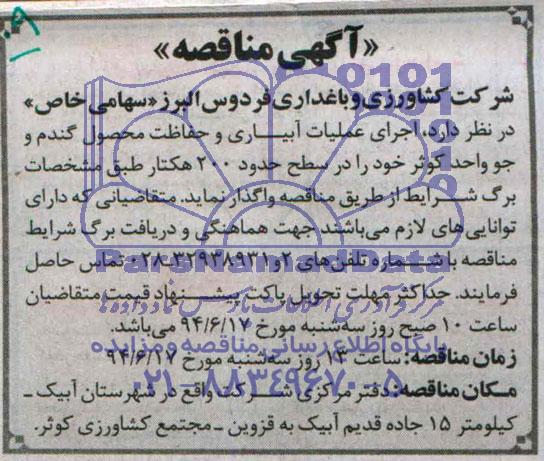 «آگهی مناقصه»
شرکت کشاورزی و باغداری فردوس البرز «سهامی خاص»
در نظر دارد، اجرای عملیات آبیاری و حفاظت محصول گندم و
جو واحد کوثر خود را در سطح حدود ۲۰۰ هکتار طبق مشخصات
برگ شرایط از طریق مناقصه واگذار نماید. متقاضیانی که دارای
توانایی‌های لازم می‌باشند جهت هماهنگی و دریافت برگ شرایط
مناقصه با شماره تلفن‌های ۲و۳۲۹۳۸۹۳۱-۰۲۸ تماس حاصل
فرمایند. حداکثر مهلت تحویل پاکت پیشنهاد قیمت متقاضیان
ساعت ۱۰ صبح روز سه‌شنبه مورخ ۹۴/۶/۱۷ می‌باشد.
زمان مناقصه: ساعت ۱۳ روز سه‌شنبه مورخ ۹۴/۶/۱۷
مکان مناقصه: دفتر مرکزی شرکت واقع در شهرستان آبیک ـ
کیلومتر ۱۵ جاده قدیم آبیک به قزوین ـ مجتمع کشاورزی کوثر.
ParsNamadData
مرکز فرآوری اطلاعات پارس نماد داده‌ها
پایگاه اطلاع رسانی مناقصه و مزایده
۰۲۱-۸۸۳۴۹۶۷۰-۵